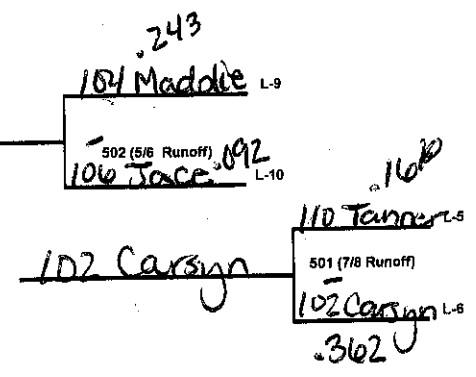 .243
104 Maddie L-9
502 (5/6 Runoff)
106 Jace .092 L-10
.160
110 Tanner L-5
102 Carsyn
501 (7/8 Runoff)
102 Carsyn L-6
.362